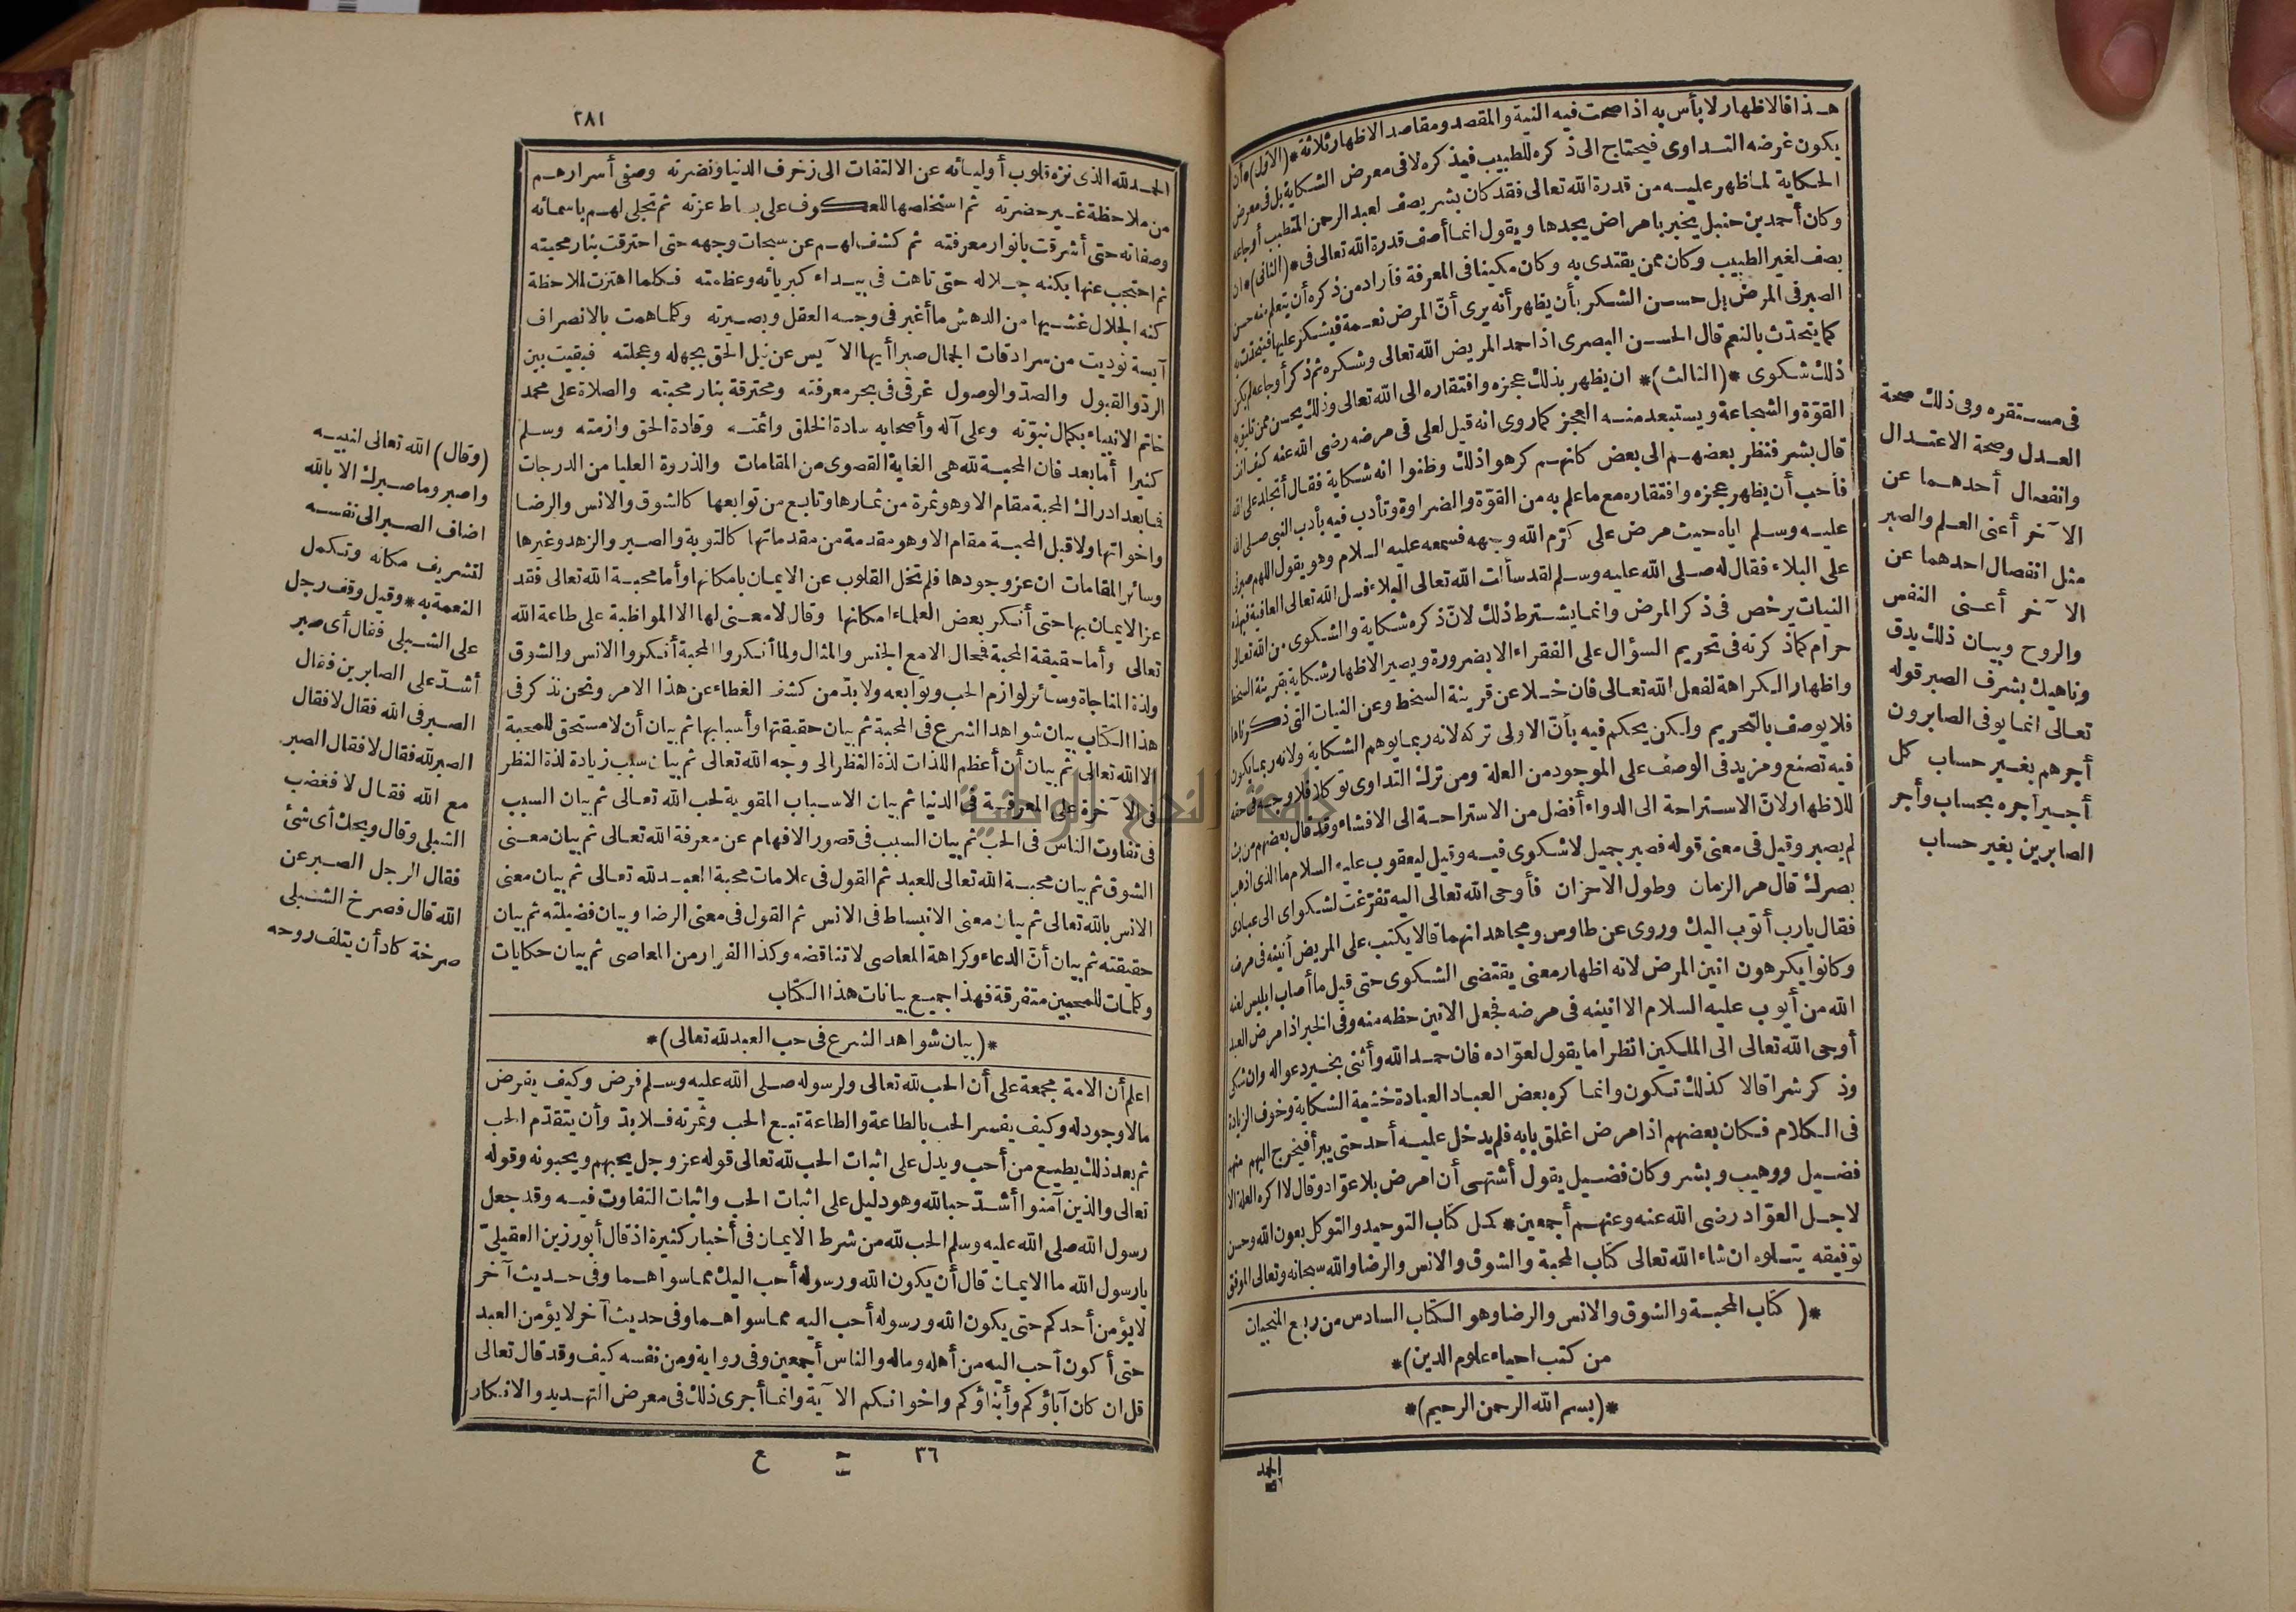 هذا فالاظهار لا بأس به اذا صحت فيه النية والمقصد ومقاصد الاظهار ثلاثة *(الاول)* أن
يكون غرضه التداوى فيحتاج الى ذكره للطبيب فيذكره لا فى معرض الشكاية بل فى معرض
الحكاية لما ظهر عليه من قدرة الله تعالى فقد كان بشر يصف لعبد الرحمن المتطبب أوجاعه
وكان أحمد بن حنبل يخبر بامراض يجدها ويقول انما أصف قدرة الله تعالى فى *(الثانى)* ان
يصف لغير الطبيب وكان ممن يقتدى به وكان مكينا فى المعرفة فأراد من ذكره أن يتعلم منه حسن
الصبر فى المرض بل حسن الشكر بأن يظهر أنه يرى أنّ المرض نعمة فيشكر عليها فيتحدث به
كما يتحدّث بالنعم قال الحسن البصرى اذا حمد المريض الله تعالى وشكره ثم ذكر أوجاعه لم يكن
ذلك شكوى *(الثالث)* ان يظهر بذلك عجزه وافتقاره الى الله تعالى وذلك يحسن ممن تليق به
القوّة والشجاعة ويستبعد منه العجز كما روى انه قيل لعلى فى مرضه رضى الله عنه كيف أنت
قال بشر فنظر بعضهم الى بعض كانهم كرهوا ذلك وظنوا انه شكاية فقال أتجلد على الله
فأحب أن يظهر عجزه وافتقاره مع ما علم به من القوّة والضراوة وتأدب فيه بأدب النبى صلى الله
عليه وسلم اياه حيث مرض على كرّم الله وجهه فسمعه عليه السلام وهو يقول اللهم صبرنى
على البلاء فقال له صلى الله عليه وسلم لقد سألت الله تعالى البلاء فسل الله تعالى العافية فبهذه
النيات يرخص فى ذكر المرض وانما يشترط ذلك لانّ ذكره شكاية والشكوى من الله تعالى
حرام كما ذكرته فى تحريم السؤال على الفقراء الا بضرورة ويصير الاظهار شكاية بقرينة السخط
واظهار الكراهة لفعل الله تعالى فان خلا عن قرينة السخط وعن النيات التى ذكرناها
فلا يوصف بالتحريم ولكن يحكم فيه بأنّ الاولى تركه لانه ربما يوهم الشكاية ولانه ربما يكون
فيه تصنع ومزيد فى الوصف على الموجود من العلة ومن ترك التداوى توكلا فلا وجه فى حقه
للاظهار لانّ الاستراحة الى الدواء أفضل من الاستراحة الى الافشاء وقد قال بعضهم من بث
لم يصبر وقيل فى معنى قوله فصبر جميل لا شكوى فيه وقيل ليعقوب عليه السلام ما الذى اذهب
بصرك قال مر الزمان وطول الاحزان فأوحى الله تعالى اليه تفرّغت لشكواى الى عبادى
فقال يارب أتوب اليك وروى عن طاوس ومجاهد انهما قالا يكتب على المريض أنينه فى مرضه
وكانوا يكرهون انين المرض لانه اظهار معنى يقتضى الشكوى حتى قيل ما أصاب ابليس لعنه
الله من أيوب عليه السلام الا انينه فى مرضه فجعل الانين حظه منه وفى الخبر اذا مرض العبد
أوحى الله تعالى الى الملكين انظرا ما يقول لعوّاده فان حمد الله وأثنى بخير دعوا له وان شكى
وذكر شرا قالا كذلك تكون وانما كره بعض العباد العيادة خشية الشكاية وخوف الزيادة
فى الكلام فكان بعضهم اذا مرض اغلق بابه فلم يدخل عليه أحد حتى يبرأ فيخرج اليهم منهم
فضيل ووهيب وبشر وكان فضيل يقول أشتهى أن امرض بلا عوّاد وقال لا اكره العلة الا
لاجل العوّاد رضى الله عنه وعنهم أجمعين * كمل كتاب التوحيد والتوكل بعون الله وحسن
توفيقه يتلوه ان شاء الله تعالى كتاب المحبة والشوق والانس والرضا والله سبحانه وتعالى الموفق
*(كتاب المحبة والشوق والانس والرضا وهو الكتاب السادس من ربع المنجيات
من كتب احياء علوم الدين)*
*(بسم الله الرحمن الرحيم)*
الحمد
فى مستقره وفى ذلك صحة
العدل وصحة الاعتدال
وانفصال أحدهما عن
الآخر أعنى العلم والصبر
مثل انفصال احدهما عن
الآخر أعنى النفس
والروح وبيان ذلك يدق
وناهيك بشرف الصبر قوله
تعالى انما يوفى الصابرون
أجرهم بغير حساب كل
أجير أجره بحساب وأجر
الصابرين بغير حساب
٢٨١
الحمد لله الذى نزه قلوب أوليائه عن الالتفات الى زخرف الدنيا ونضرته وصفى أسرارهم
من ملاحظة غير حضرته ثم استخلصها للعكوف على بساط عزته ثم تجلى لهم باسمائه
وصفاته حتى أشرقت بانوار معرفته ثم كشف لهم عن سبحات وجهه حتى احترقت بنار محبته
ثم احتجب عنها بكنه جلاله حتى تاهت فى بيداء كبريائه وعظمته فكلما اهتزت لملاحظة
كنه الجلال غشيها من الدهش ما أغبر فى وجه العقل وبصيرته وكلما همت بالانصراف
آيسة نوديت من سرادقات الجمال صبرا أيها الآيس عن نيل الحق بجهله وعجلته فبقيت بين
الردّ والقبول والصدّ والوصول غرقى فى بحر معرفته ومحترقة بنار محبته والصلاة على محمد
خاتم الانبياء بكمال نبوّته وعلى آله وأصحابه سادة الخلق وائمته وقادة الحق وازمته وسلم
كثيرا أما بعد فان المحبة لله هى الغاية القصوى من المقامات والذروة العليا من الدرجات
فما بعد ادراك المحبة مقام الا وهو ثمرة من ثمارها وتابع من توابعها كالشوق والانس والرضا
واخواتها ولا قبل المحبة مقام الا وهو مقدمة من مقدماتها كالتوبة والصبر والزهد وغيرها
وسائر المقامات ان عز وجودها فلم تخل القلوب عن الايمان بامكانها وأما محبة الله تعالى فقد
عز الايمان بها حتى أنكر بعض العلماء امكانها وقال لا معنى لها الا المواظبة على طاعة الله
تعالى وأما حقيقة المحبة فمحال الا مع الجنس والمثال ولما أنكروا المحبة أنكروا الانس والشوق
ولذة المناجاة وسائر لوازم الحب وتوابعه ولا بدّ من كشف الغطاء عن هذا الامر ونحن نذكر فى
هذا الكتاب بيان شواهد الشرع فى المحبة ثم بيان حقيقتها وأسبابها ثم بيان أن لا مستحق للمحبة
الا الله تعالى ثم بيان أن أعظم اللذات لذة النظر الى وجه الله تعالى ثم بيان سبب زيادة لذة النظر
فى الآخرة على المعرفة فى الدنيا ثم بيان الاسباب المقوية لحب الله تعالى ثم بيان السبب
فى تفاوت الناس فى الحب ثم بيان السبب فى قصور الافهام عن معرفة الله تعالى ثم بيان معنى
الشوق ثم بيان محبة الله تعالى للعبد ثم القول فى علامات محبة العبد لله تعالى ثم بيان معنى
الانس بالله تعالى ثم بيان معنى الانبساط فى الانس ثم القول فى معنى الرضا وبيان فضيلته ثم بيان
حقيقته ثم بيان أنّ الدعاء وكراهة المعاصى لا تناقضه وكذا الفرار من المعاصى ثم بيان حكايات
وكلمات للمحبين متفرقة فهذا جميع بيانات هذا الكتاب
*(بيان شواهد الشرع فى حب العبد لله تعالى)*
اعلم أن الامة مجمعة على أن الحب لله تعالى ولرسوله صلى الله عليه وسلم فرض وكيف يفرض
مالا وجود له وكيف يفسر الحب بالطاعة والطاعة تبع الحب وثمرته فلا بدّ وأن يتقدّم الحب
ثم بعد ذلك يطيع من أحب ويدل على اثبات الحب لله تعالى قوله عز وجل يحبهم ويحبونه وقوله
تعالى والذين آمنوا أشدّ حبا لله وهو دليل على اثبات الحب واثبات التفاوت فيه وقد جعل
رسول الله صلى الله عليه وسلم الحب لله من شرط الايمان فى أخبار كثيرة اذ قال أبو رزين العقيلىّ
يارسول الله ما الايمان قال أن يكون الله ورسوله أحب اليك مما سواهما وفى حديث آخر
لا يؤمن أحدكم حتى يكون الله ورسوله أحب اليه مما سواهما وفى حديث آخر لا يؤمن العبد
حتى أكون أحب اليه من أهله وماله والناس أجمعين وفى رواية ومن نفسه كيف وقد قال تعالى
قل ان كان آباؤكم وأبناؤكم واخوانكم الآية وانما أجرى ذلك فى معرض التهديد والانكار
٣٦ ع
(وقال) الله تعالى لنبيه
واصبر وما صبرك الا بالله
اضاف الصبر الى نفسه
لتشريف مكانه وتكمل
النعمة به * وقيل وقف رجل
على الشبلى فقال أى صبر
أشدّ على الصابرين فقال
الصبر فى الله فقال لا فقال
الصبر لله فقال لا فقال الصبر
مع الله فقال لا فغضب
الشبلى وقال ويحك أى شئ
فقال الرجل الصبر عن
الله قال فصرخ الشبلى
صرخة كاد أن يتلف روحه
جامعة النجاح الوطنية